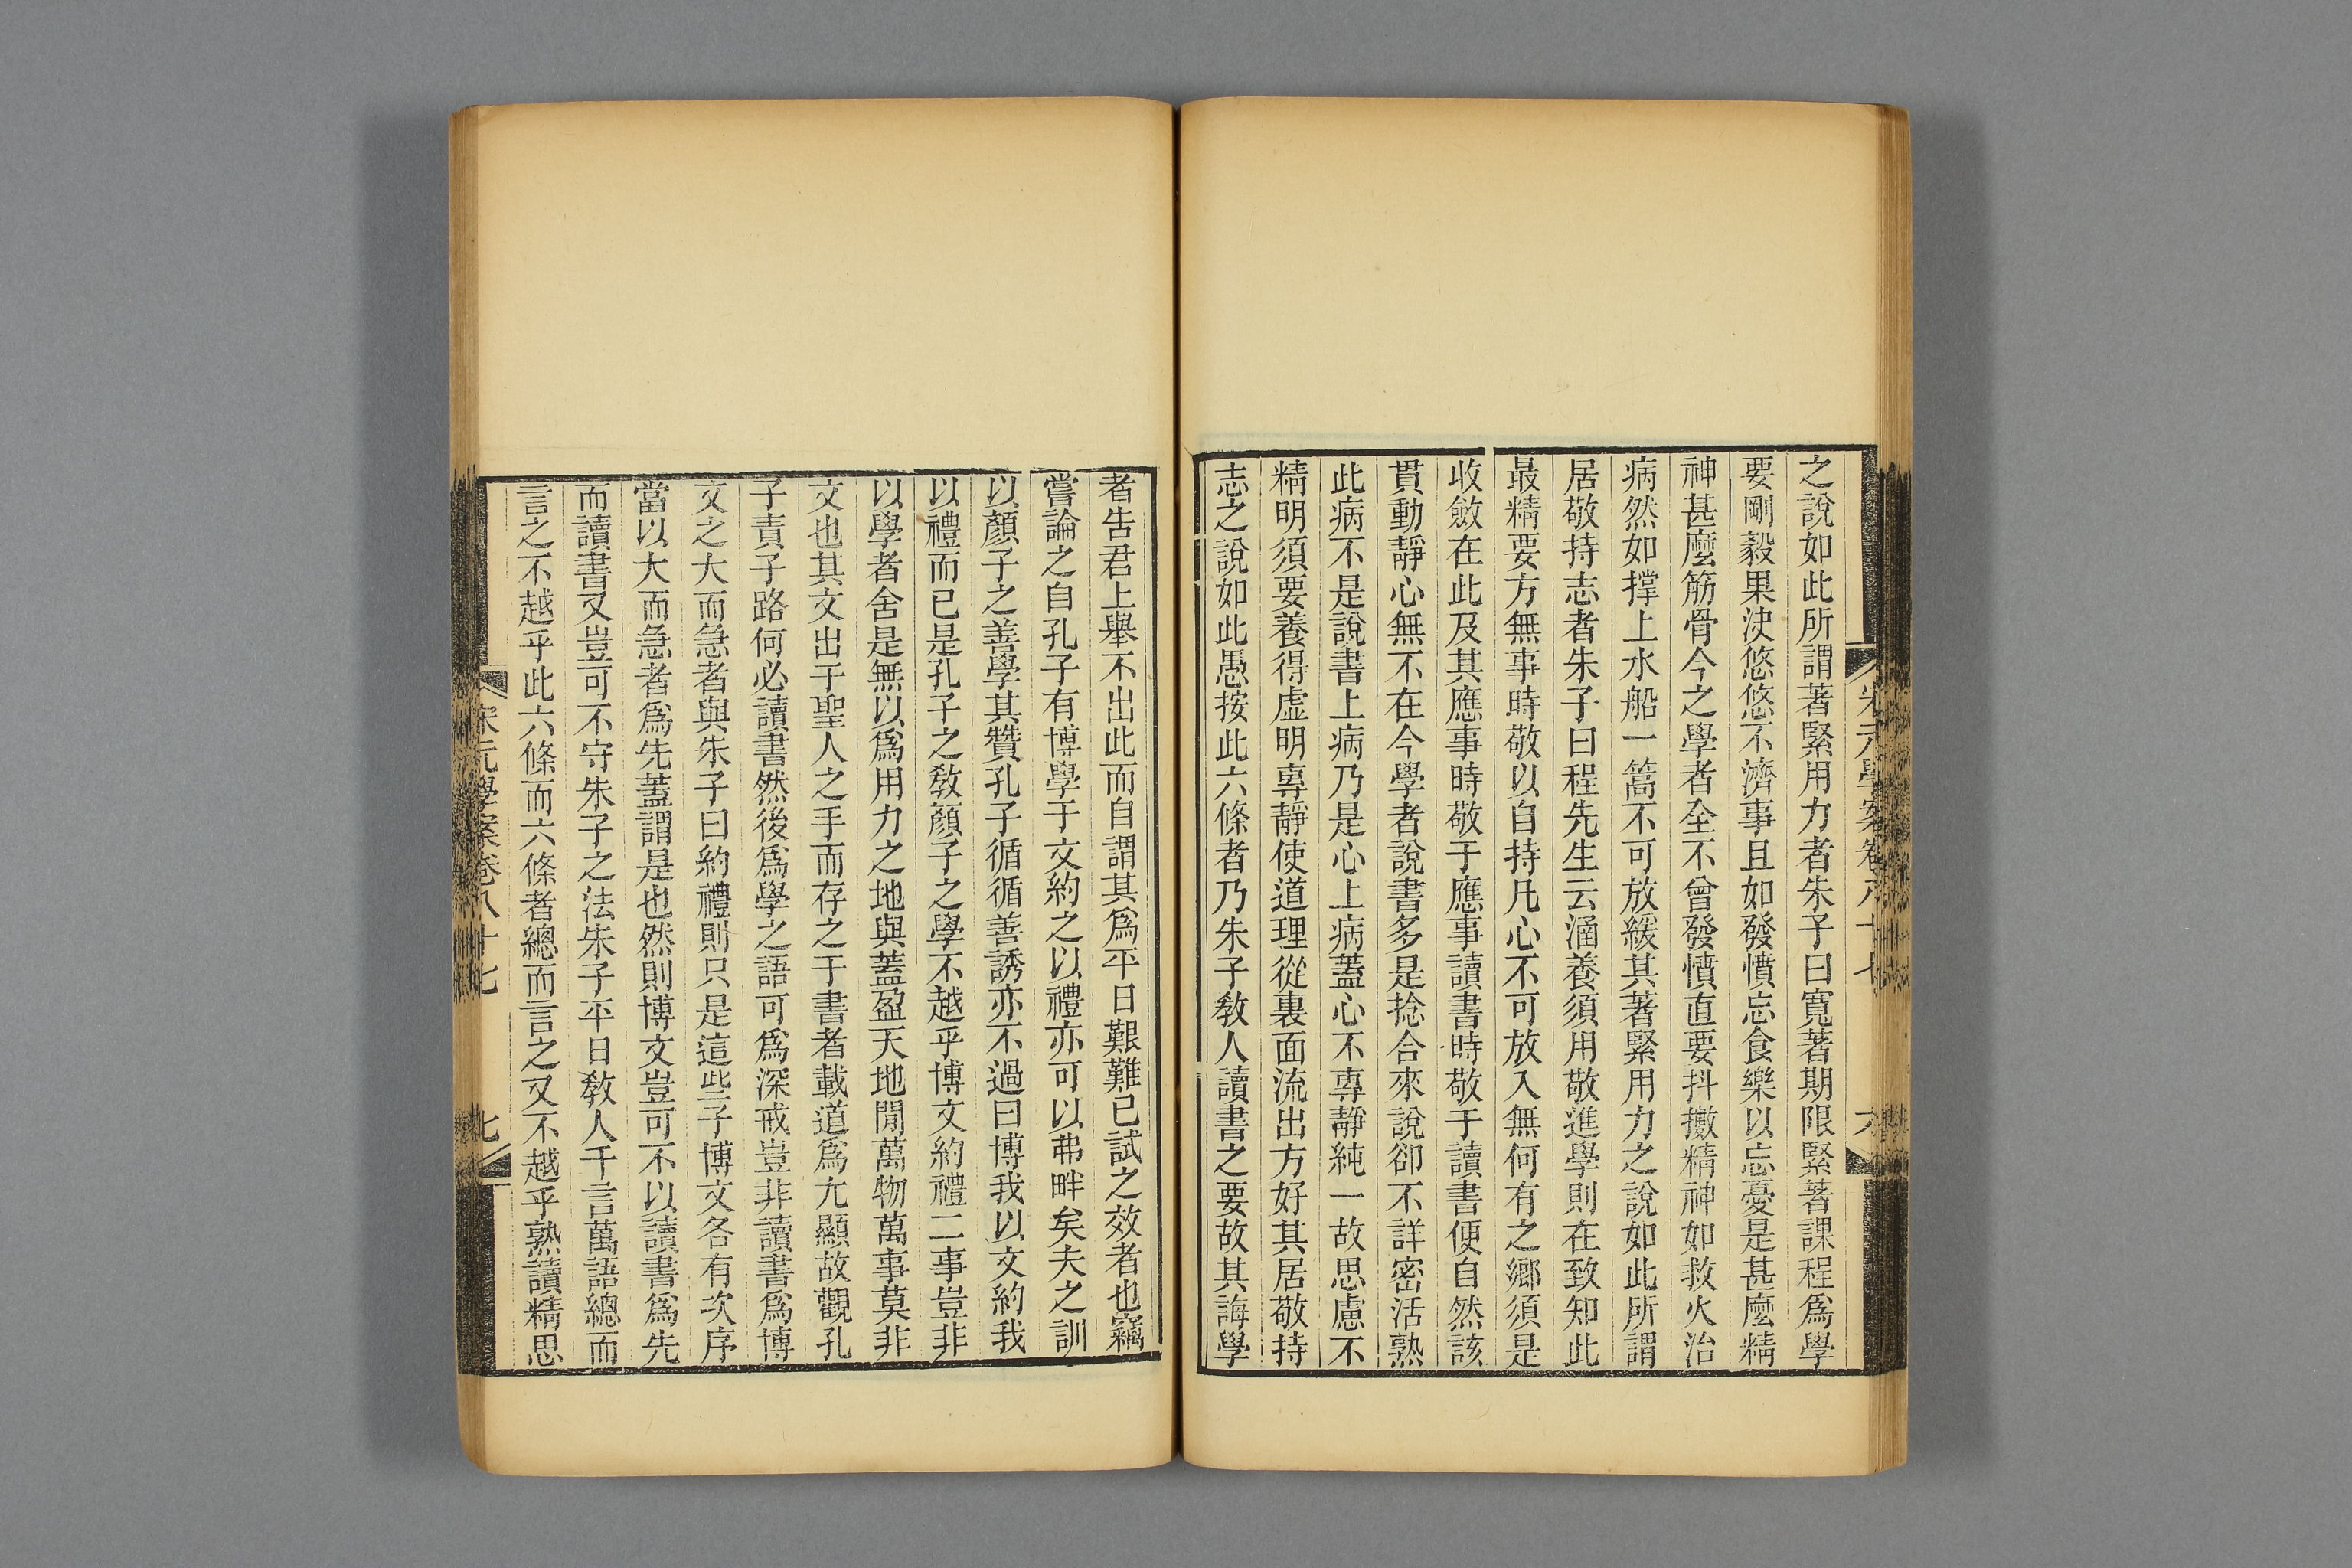 之說如此所謂著緊用力者朱子曰寬著期限緊著課程爲學
要剛毅果決悠悠不濟事且如發憤忘食樂以忘憂是甚麼精
神甚麼筋骨今之學者全不曾發憤直要抖擻精神如救火治
病然如撐上水船一篙不可放緩其著緊用力之說如此所謂
居敬持志者朱子曰程先生云涵養須用敬進學則在致知此
最精要方無事時敬以自持凡心不可放入無何有之鄉須是
收斂在此及其應事時敬于應事讀書時敬于讀書便自然該
貫動靜心無不在今學者說書多是捻合來說卻不詳密活熟
此病不是說書上病乃是心上病蓋心不專靜純一故思慮不
精明須要養得虛明專靜使道理從裏面流出方好其居敬持
志之說如此愚按此六條者乃朱子敎人讀書之要故其誨學
者告君上舉不出此而自謂其爲平日艱難已試之效者也竊
嘗論之自孔子有博學于文約之以禮亦可以弗畔矣夫之訓
以顏子之善學其贊孔子循循善誘亦不過曰博我以文約我
以禮而已是孔子之敎顏子之學不越乎博文約禮二事豈非
以學者舍是無以爲用力之地與蓋盈天地閒萬物萬事莫非
文也其文出于聖人之手而存之于書者載道爲尤顯故觀孔
子責子路何必讀書然後爲學之語可爲深戒豈非讀書爲博
文之大而急者與朱子曰約禮則只是這些子博文各有次序
當以大而急者爲先蓋謂是也然則博文豈可不以讀書爲先
而讀書又豈可不守朱子之法朱子平日敎人千言萬語總而
言之不越乎此六條而六條者總而言之又不越乎熟讀精思
宋元學案卷八十七
七